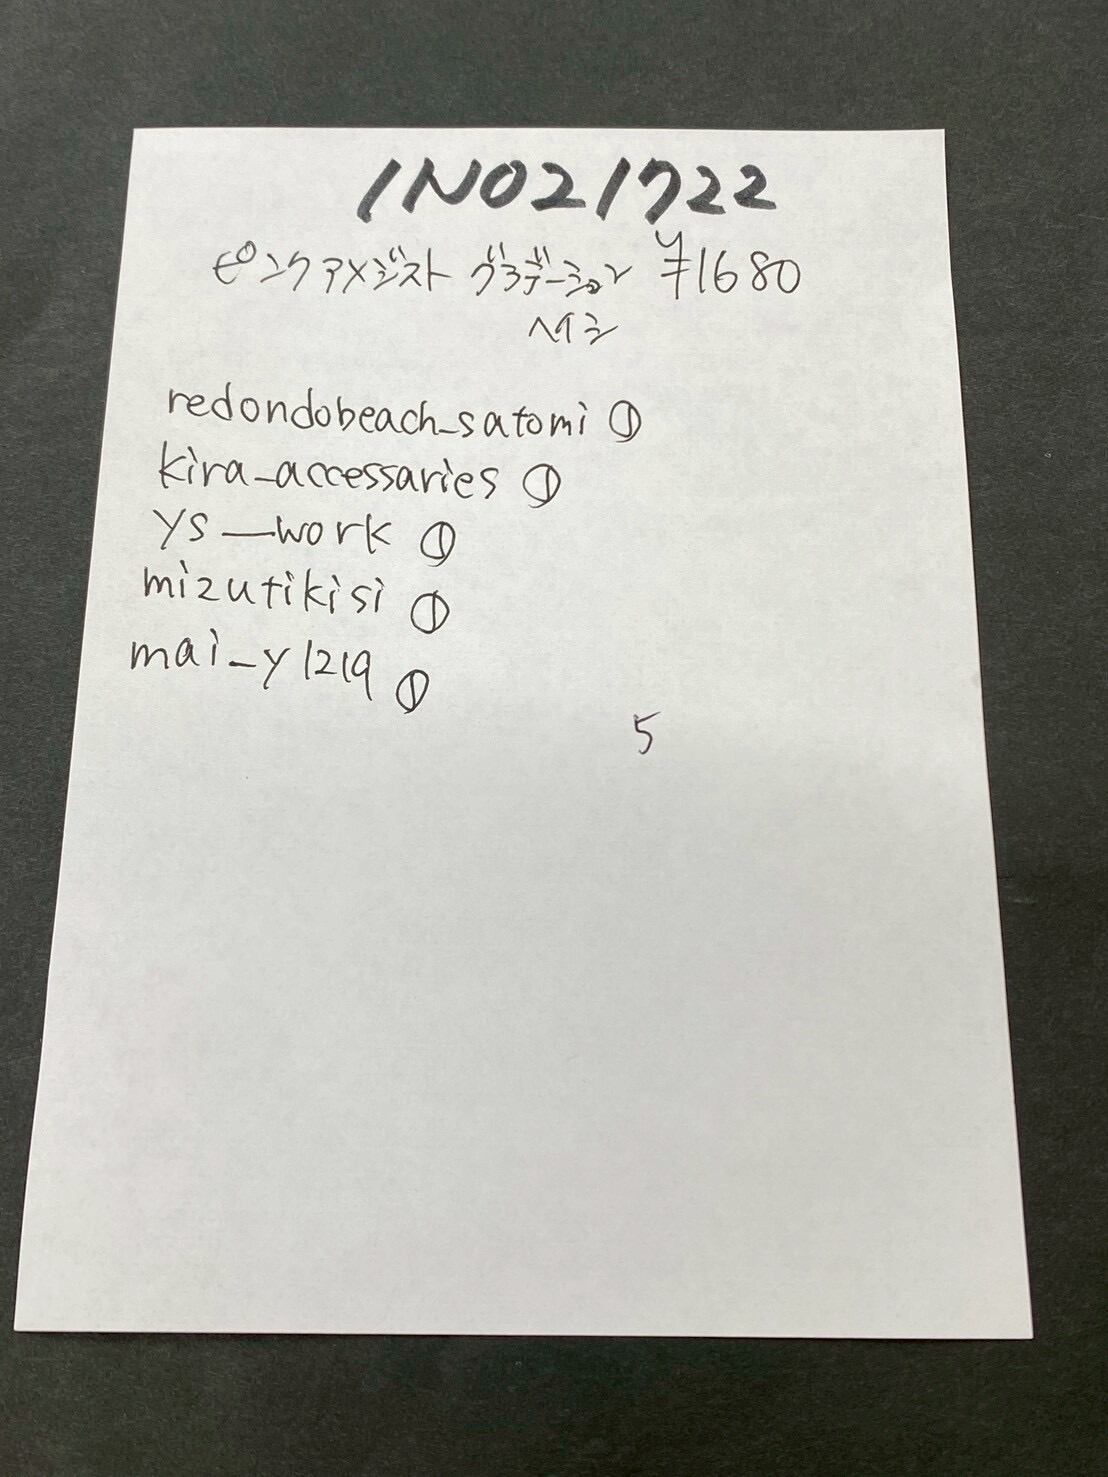 1N021722
ピンクアメジスト グラデーション ¥1680
ヘイシ
redondobeach_satomi ①
kira_accessaries ①
ys__work ①
mizutikisi ①
mai_y1219 ①
5